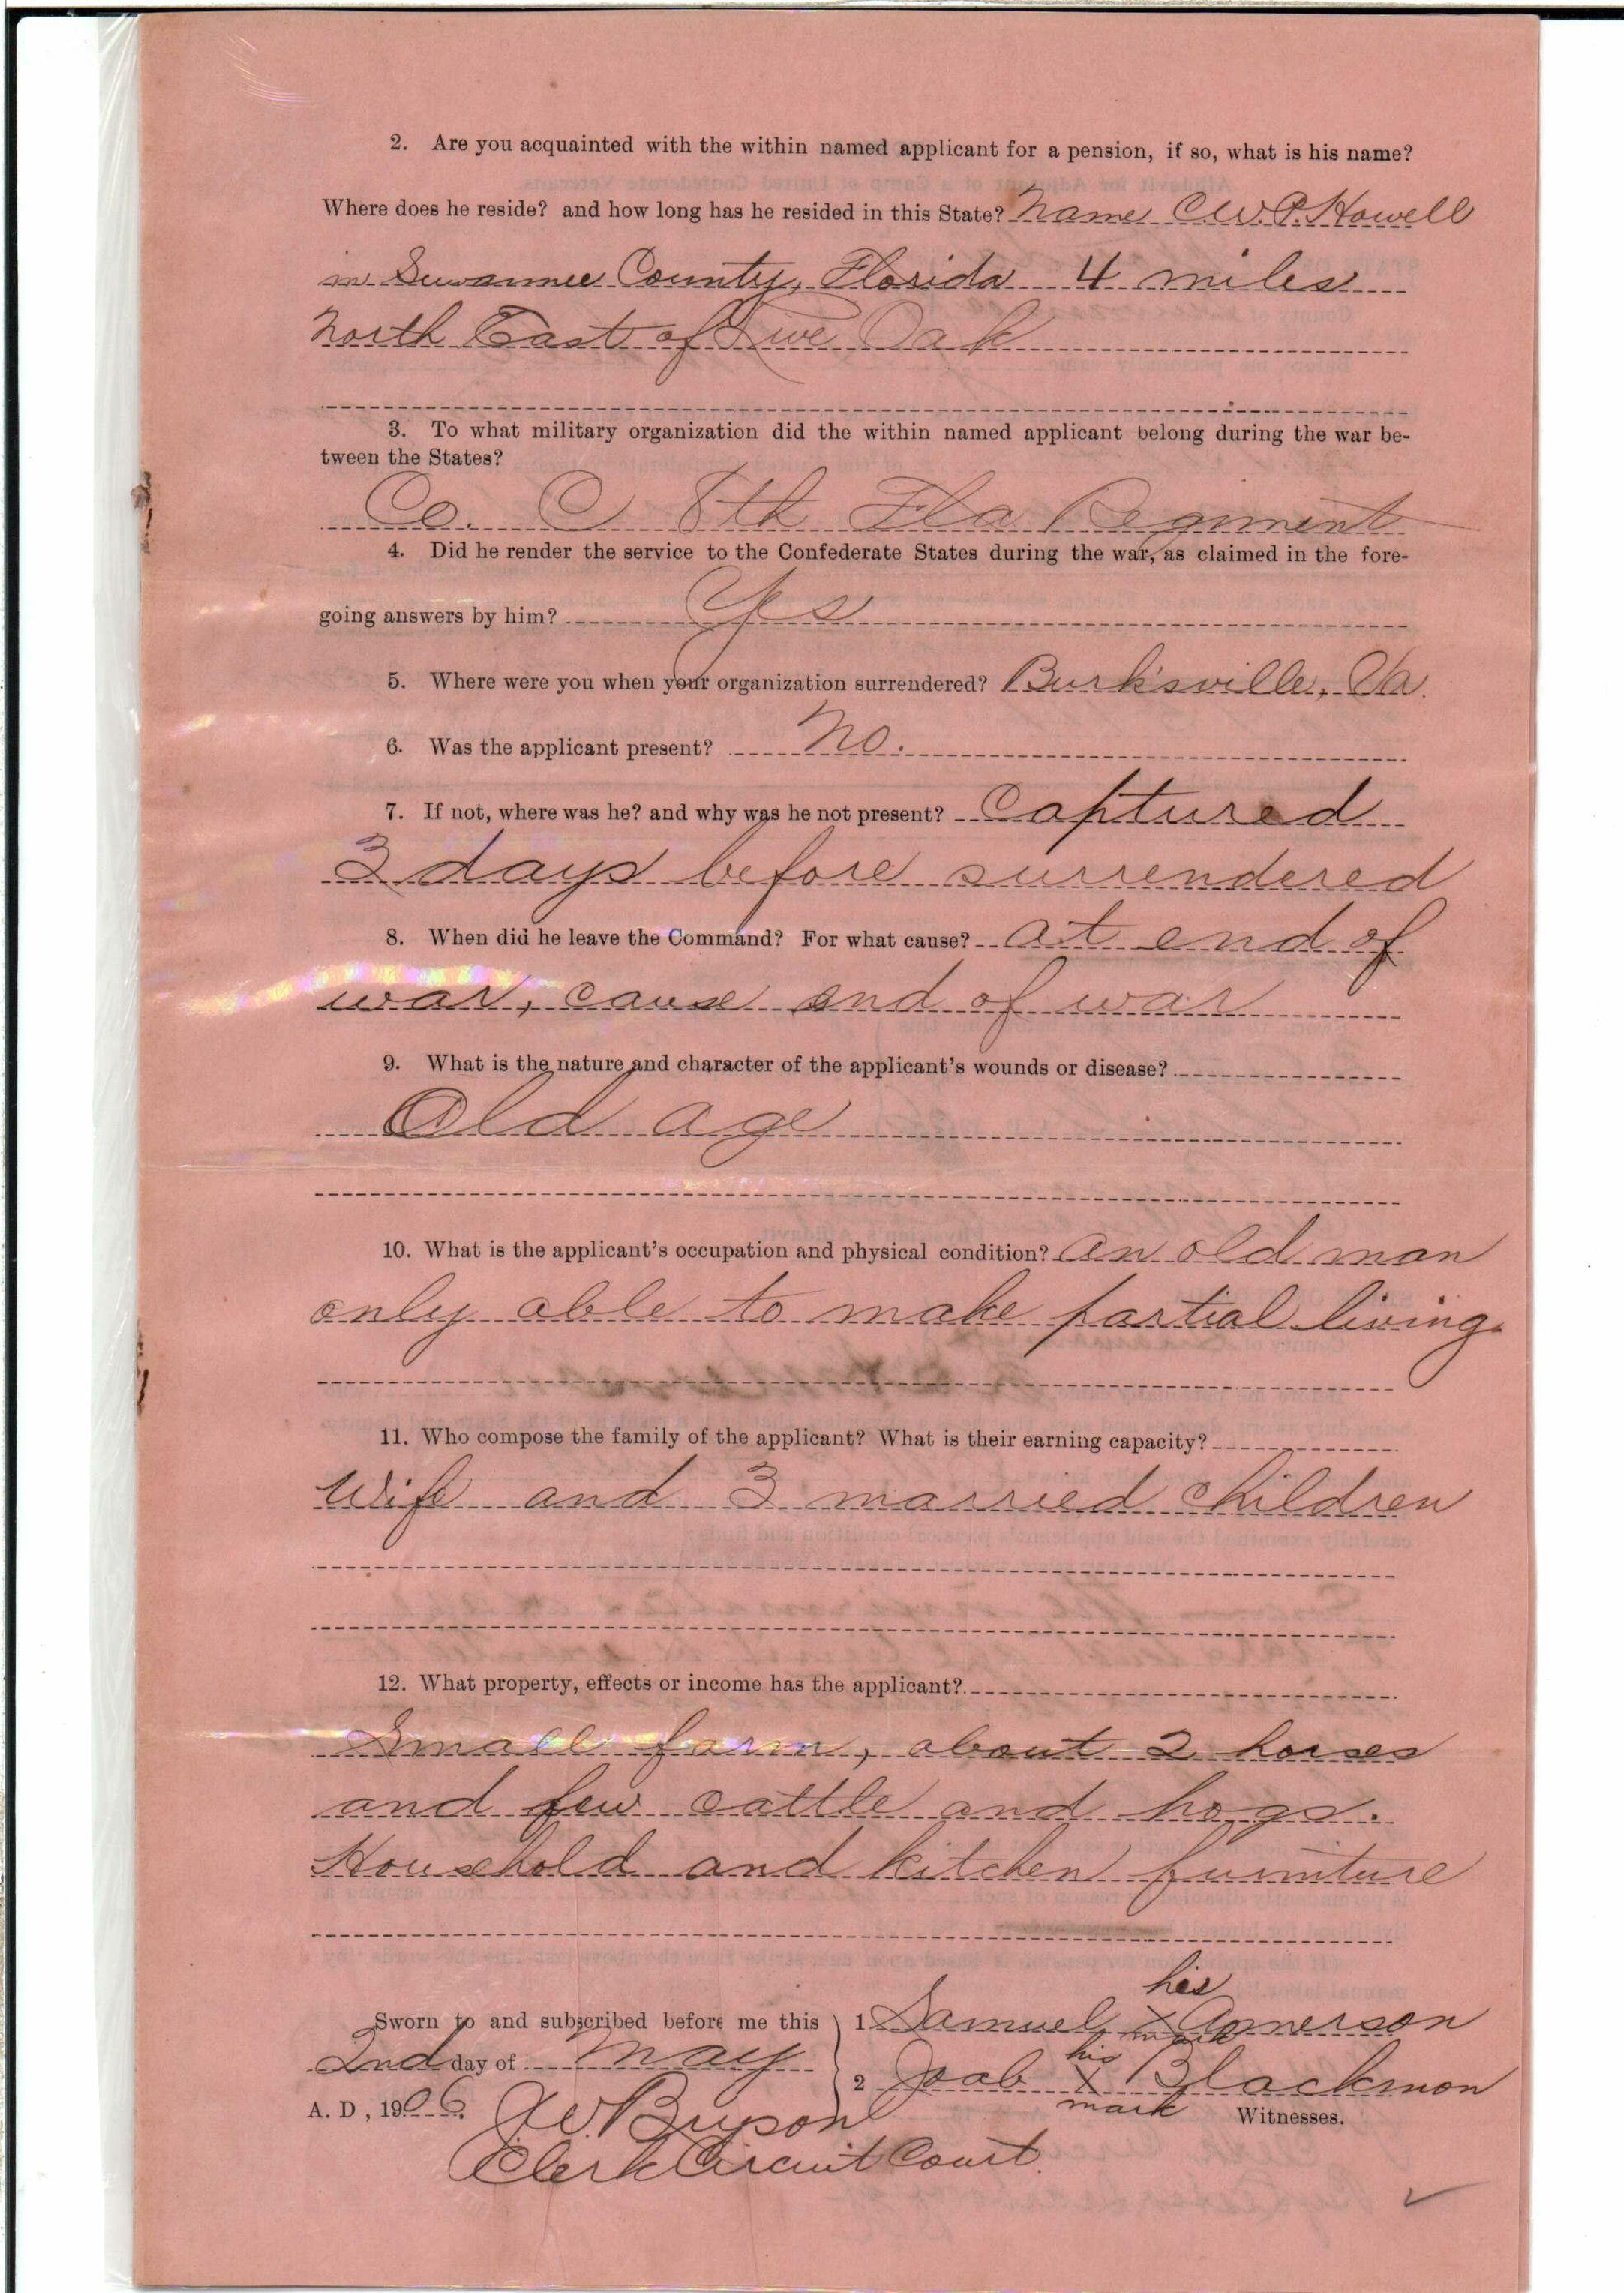 2. Are you acquainted with the within named applicant for a pension, if so, what is his name?
Where does he reside? and how long has he resided in this State? Name C.W.P. Howell
in Suwannee County, Florida 4 miles
North East of Live Oak
3. To what military organization did the within named applicant belong during the war be-
tween the States?
Co. C 8th Fla Regiment
4. Did he render the service to the Confederate States during the war, as claimed in the fore-
going answers by him? Yes
5. Where were you when your organization surrendered? Burk'sville, Va.
6. Was the applicant present? No.
7. If not, where was he? and why was he not present? Captured
3 days before surrendered
8. When did he leave the Command? For what cause? at end of
war, cause end of war
9. What is the nature and character of the applicant's wounds or disease?
Old age
10. What is the applicant's occupation and physical condition? An old man
only able to make partial living.
11. Who compose the family of the applicant? What is their earning capacity?
Wife and 3 married children
12. What property, effects or income has the applicant?
Small farm, about 2 horses
and few cattle and hogs.
Household and kitchen furniture
his
Sworn to and subscribed before me this 1 Samuel X Amerson
mark
2nd day of May his
2 Joab X Blackmon
A. D., 1906. mark Witnesses.
J.W. Bryson
Clerk Circuit Court.